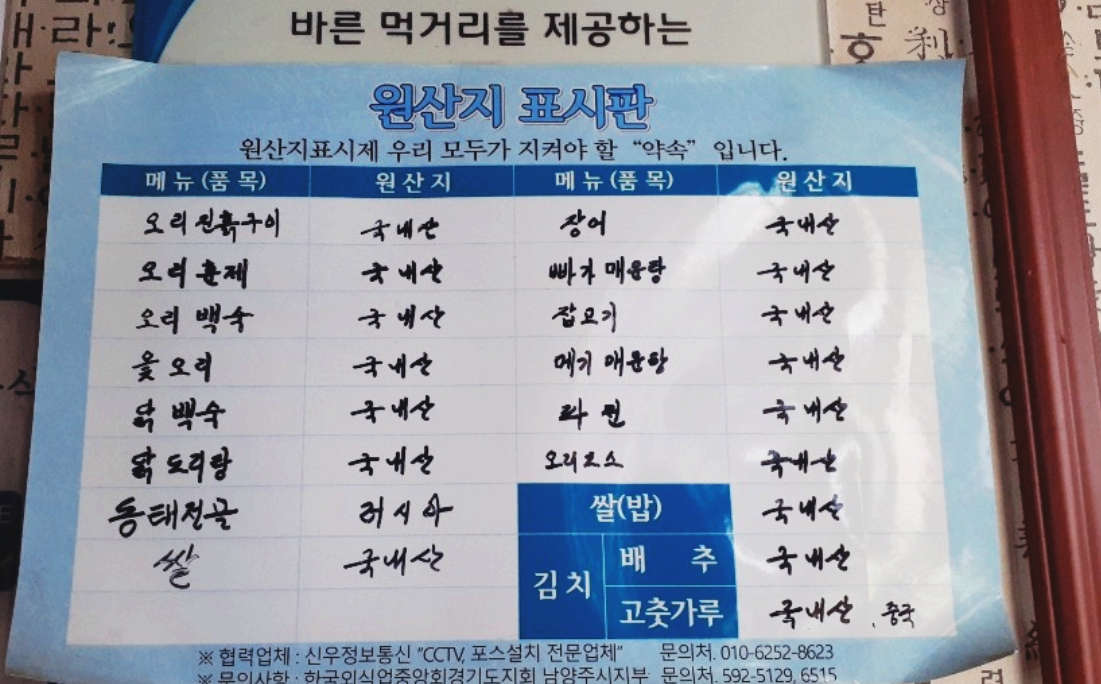 바른 먹거리를 제공하는
원산지 표시판
원산지표시제 우리 모두가 지켜야 할 “약속” 입니다.
메뉴(품목) 원산지 메뉴(품목) 원산지
오리진흙구이 국내산 장어 국내산
오리훈제 국내산 빠가 매운탕 국내산
오리 백숙 국내산 잡고기 국내산
옻오리 국내산 메기 매운탕 국내산
닭 백숙 국내산 국내산
닭 도리탕 국내산 국내산
동태전골 러시아 쌀(밥) 국내산
쌀 국내산 김치 배추 국내산
고춧가루 국내산, 중국
※ 협력업체 : 신우정보통신 "CCTV, 포스설치 전문업체" 문의처. 010-6252-8623
※ 문의사항 : 한국외식업중앙회경기도지회 남양주시지부 문의처. 592-5129, 6515